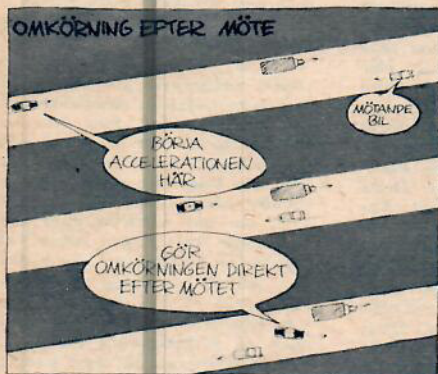 OMKÖRNING EFTER MÖTE
MÖTANDE
BIL
BÖRJA
ACCELERATIONEN
HÄR
GÖR
OMKÖRNINGEN DIREKT
EFTER MÖTET